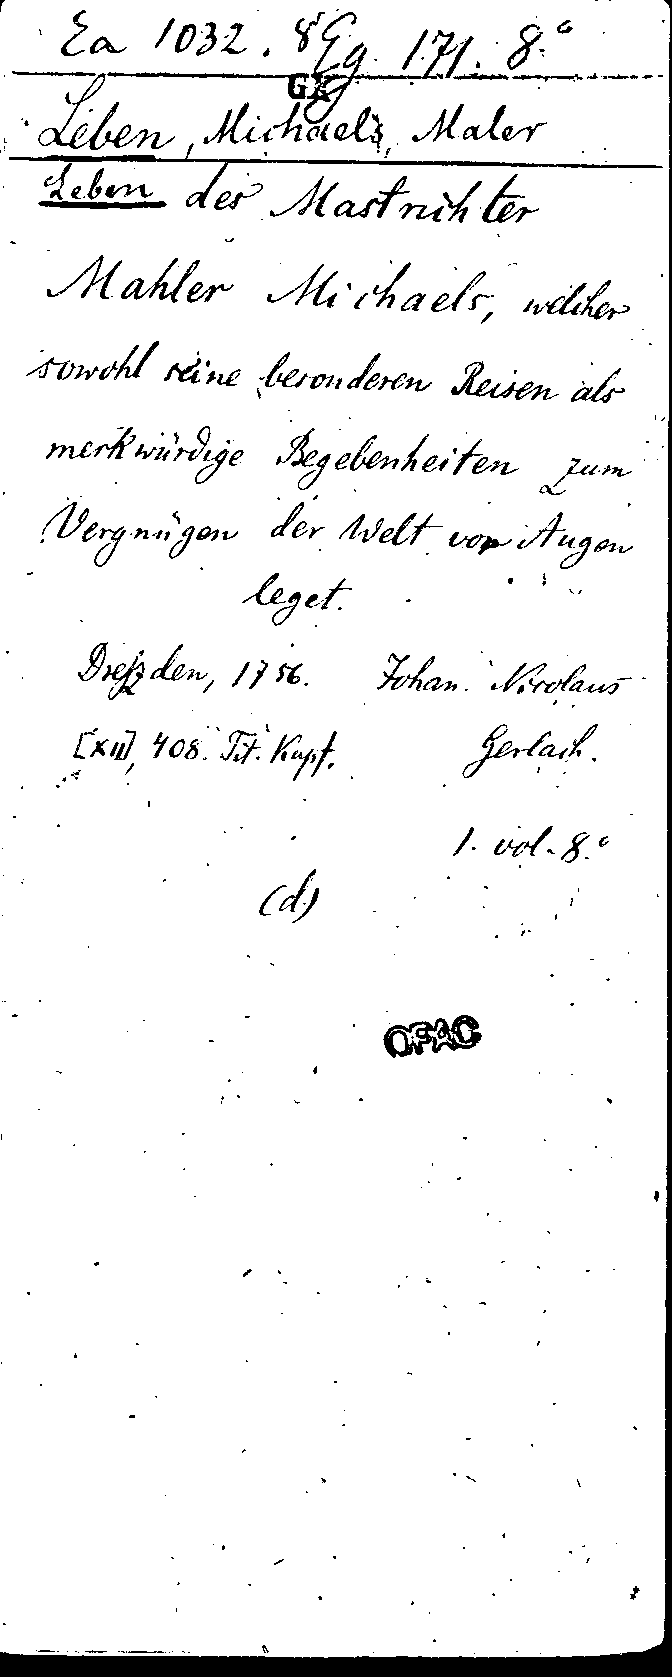 Ea 1032. 8° Gg. 171. 8.°
GK
Leben, Michaels, Maler
Leben des Mastrichter
Mahler Michaels, welcher
sowohl seine besonderen Reisen als
merkwürdige Begebenheiten zum
Vergnügen der Welt vor Augen
leget.
Dreßden, 1756. Johan. Nicolaus
[XII], 408. Tit. Kupf. Gerlach.
1. vol. 8.°
(d)
OFAC